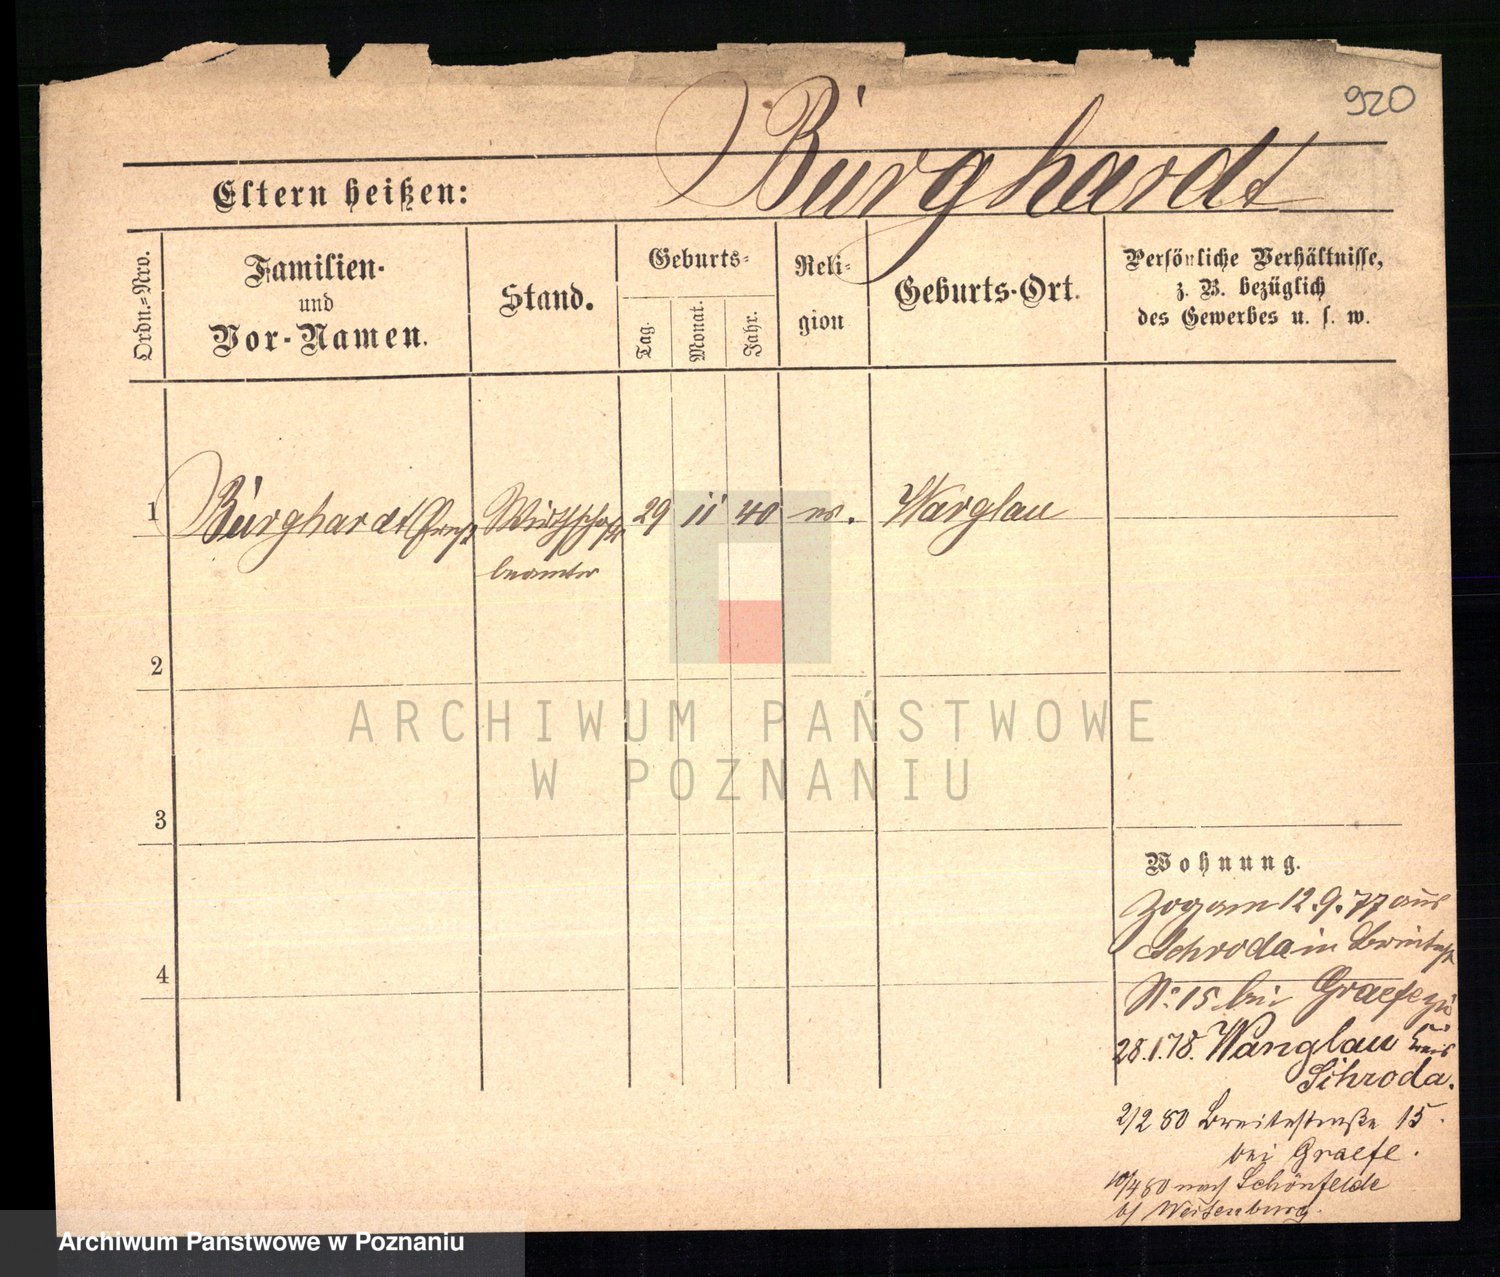 920
Burghardt
Eltern heißen:
Ordn.-Nro.
Familien-
und
Vor-Namen.
Stand.
Geburts-
Tag.
Monat.
Jahr.
Reli-
gion
Geburts-Ort.
Persönliche Verhältnisse,
z. B. bezüglich
des Gewerbes u. s. w.
1 Burghardt Ernst Wirthschafts 29 11 40 ev. Warglau
beamter
2
ARCHIWUM PAŃSTWOWE
W POZNANIU
3
Wohnung.
Zog am 12.9.77 aus
Schroda in Breitestr
4
No 15 bei Graefe zu
28.1.78. Wanglau Kreis
Schroda.
2/2 80 Breitestraße 15.
bei Graefe.
10/4 80 nach Schönfelde
b/
Archiwum Państwowe w Poznaniu